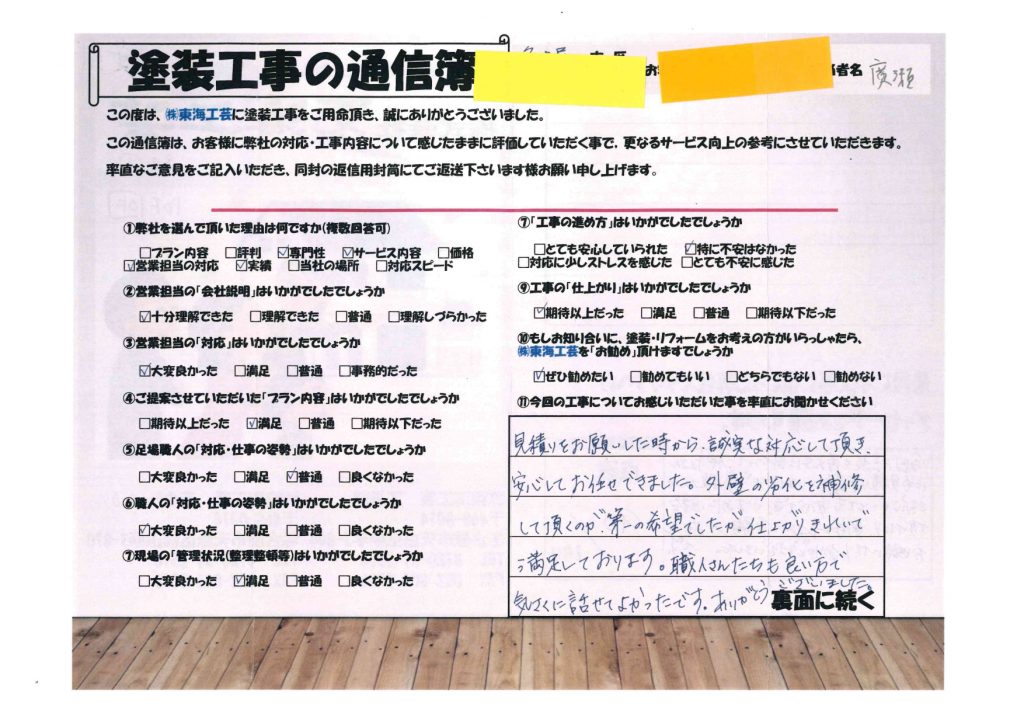 塗装工事の通信簿
者名 廣瀬
この度は、㈱東海工芸に塗装工事をご用命頂き、誠にありがとうございました。
この通信簿は、お客様に弊社の対応・工事内容について感じたままに評価していただく事で、更なるサービス向上の参考にさせていただきます。
率直なご意見をご記入いただき、同封の返信用封筒にてご返送下さいます様お願い申し上げます。
①弊社を選んで頂いた理由は何ですか(複数回答可)
□プラン内容 □評判 ☑専門性 ☑サービス内容 □価格
☑営業担当の対応 ☑実績 □当社の場所 □対応スピード
②営業担当の「会社説明」はいかがでしたでしょうか
☑十分理解できた □理解できた □普通 □理解しづらかった
③営業担当の「対応」はいかがでしたでしょうか
☑大変良かった □満足 □普通 □事務的だった
④ご提案させていただいた「プラン内容」はいかがでしたでしょうか
□期待以上だった ☑満足 □普通 □期待以下だった
⑤足場職人の「対応・仕事の姿勢」はいかがでしたでしょうか
□大変良かった □満足 ☑普通 □良くなかった
⑥職人の「対応・仕事の姿勢」はいかがでしたでしょうか
☑大変良かった □満足 □普通 □良くなかった
⑦現場の「管理状況(整理整頓等)はいかがでしたでしょうか
□大変良かった ☑満足 □普通 □良くなかった
⑦「工事の進め方」はいかがでしたでしょうか
□とても安心していられた ☑特に不安はなかった
□対応に少しストレスを感じた □とても不安に感じた
⑨工事の「仕上がり」はいかがでしたでしょうか
☑期待以上だった □満足 □普通 □期待以下だった
⑩もしお知り合いに、塗装・リフォームをお考えの方がいらっしゃたら、
㈱東海工芸を「お勧め」頂けますでしょうか
☑ぜひ勧めたい □勧めてもいい □どちらでもない □勧めない
⑪今回の工事についてお感じいただいた事を率直にお聞かせください
見積りをお願いした時から、誠実な対応して頂き、
安心してお任せできました。外壁の劣化を補修
して頂くのが、第一の希望でしたが、仕上がりきれいで
満足しております。職人さんたちも良い方で
気さくに話せてよかったです。ありがとうございました。
裏面に続く